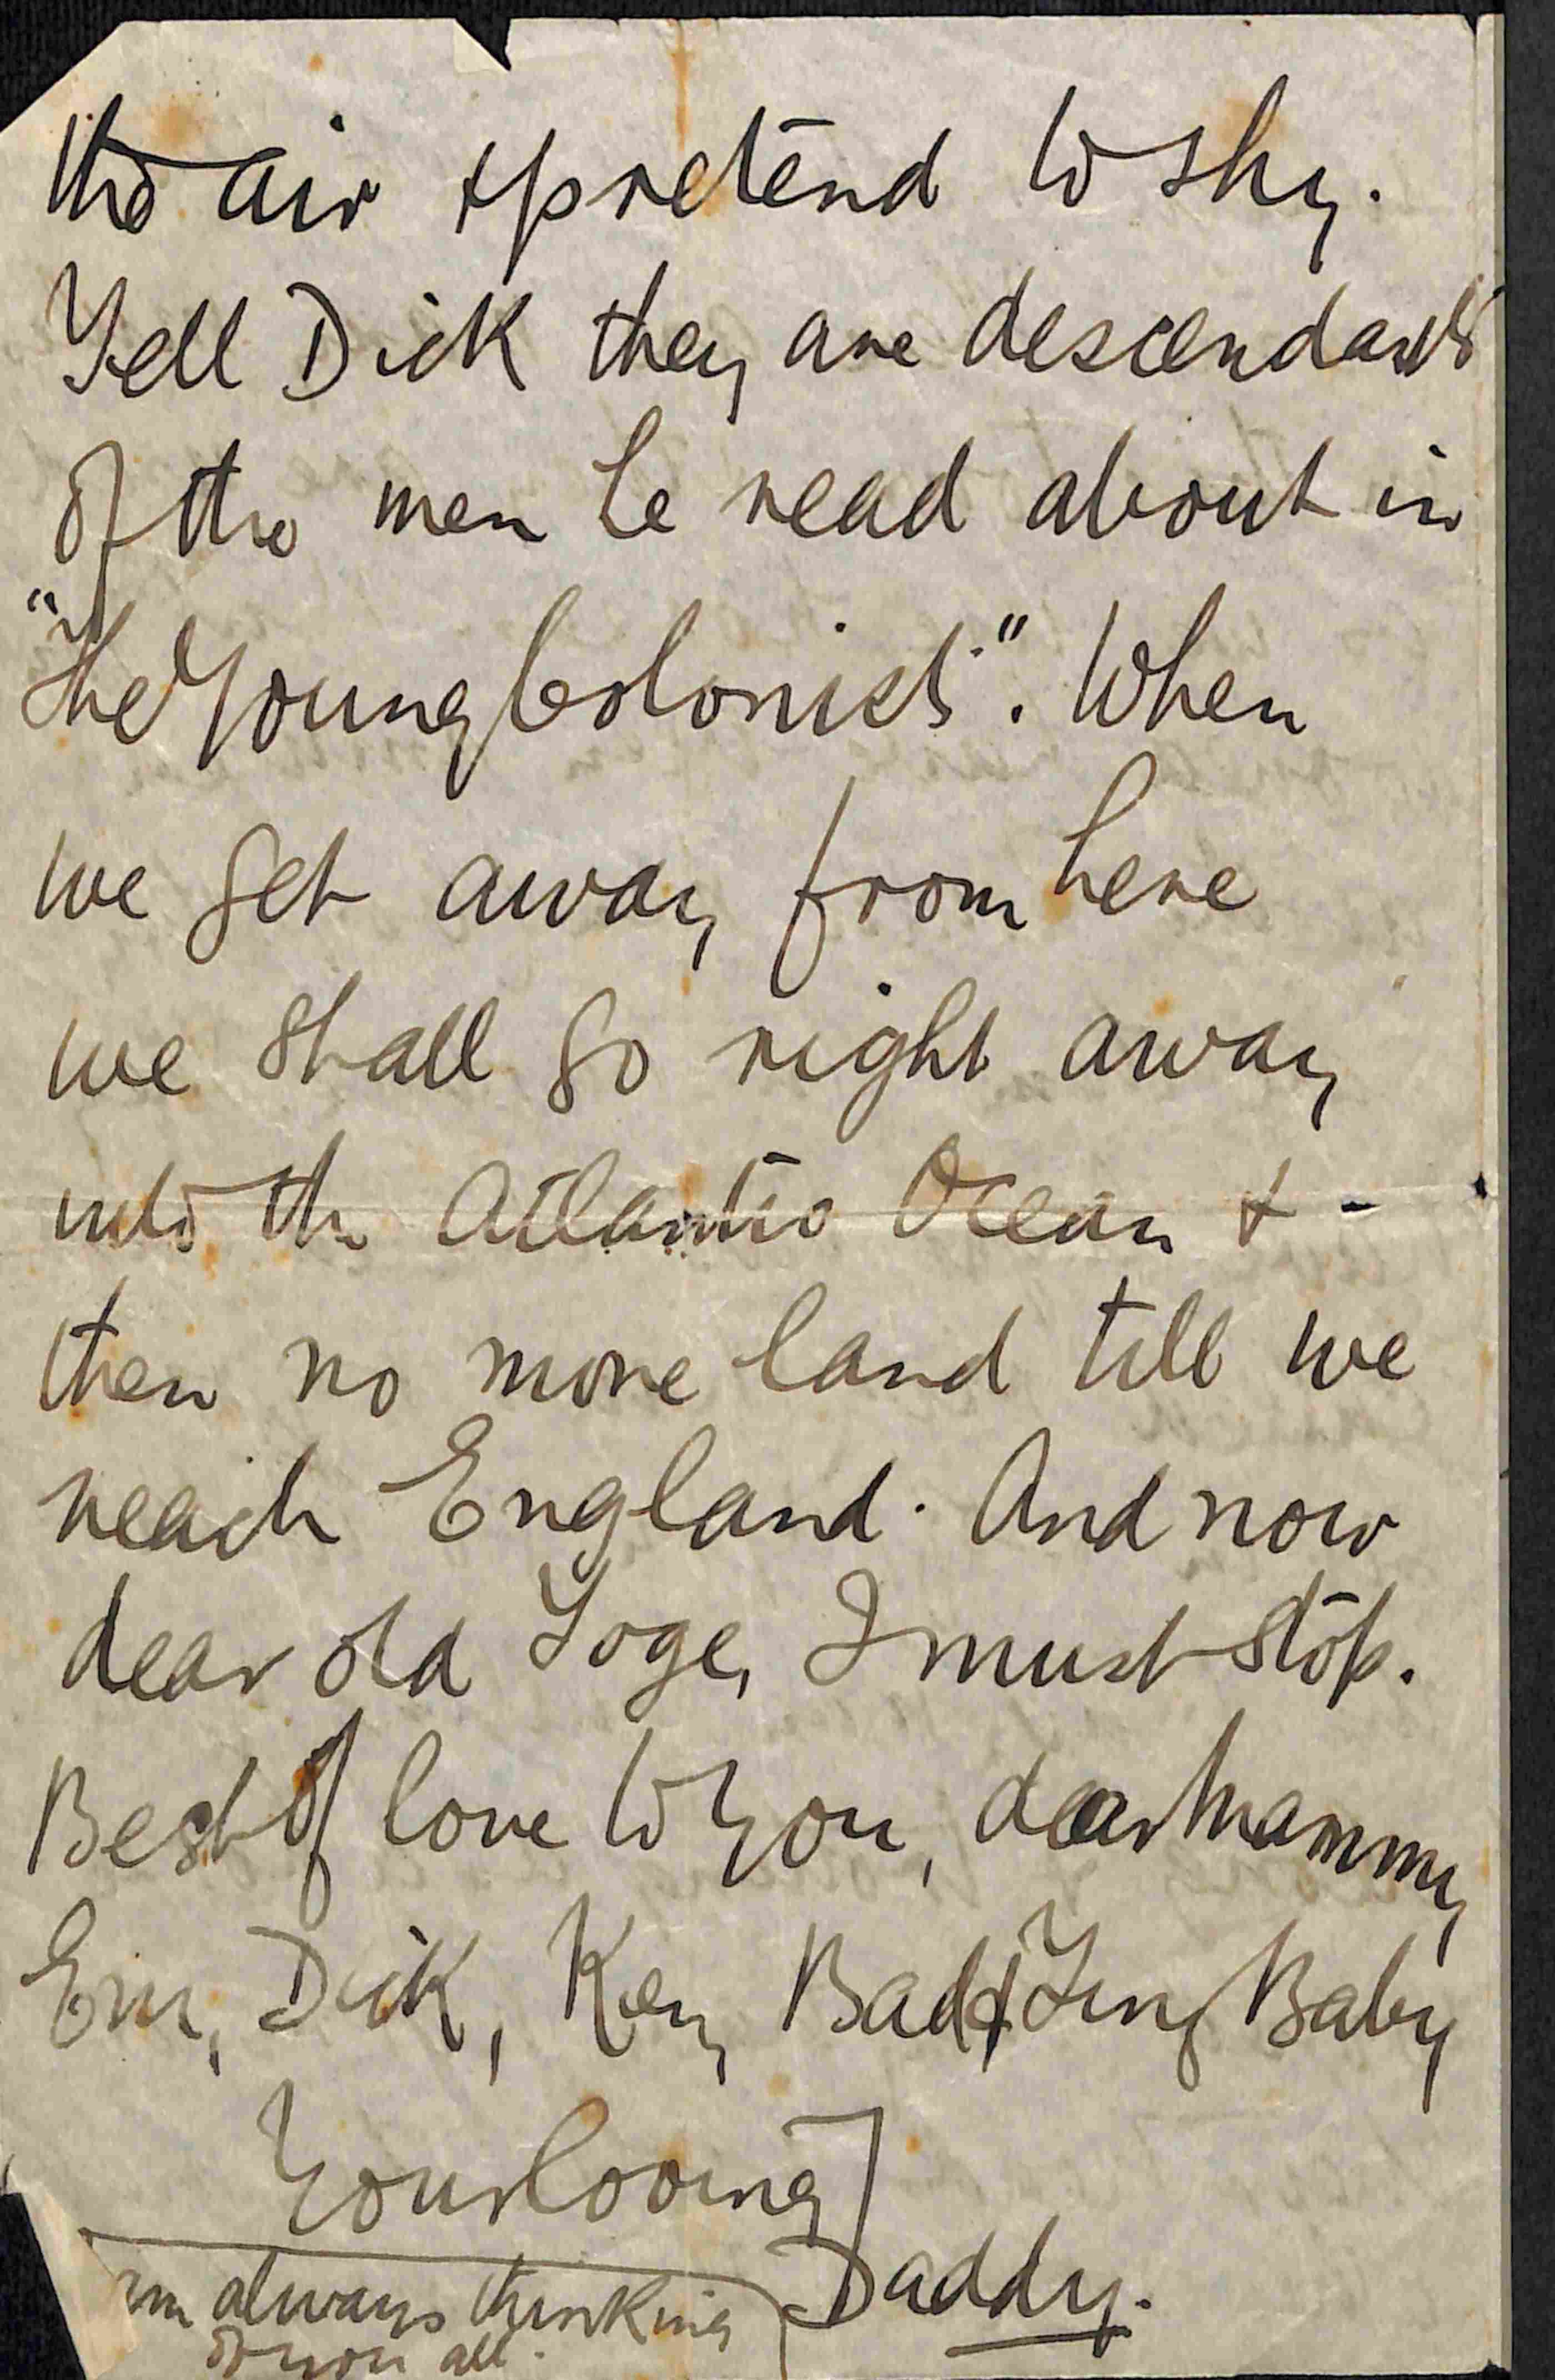 the air & pretend to shy.
Tell Dick they are descendants
of the men he read about in
"The Young Colonists". When
we get away from here
we shall go right away
into the Atlantic Ocean & -
then no more land till we
reach England. And now
dear old Toge, I must stop.
Best of love to you, dear Mammy
Eric, Dick, Ken, Bad & Ting Baby
Your loving
Daddy.
am always thinking
of you all.